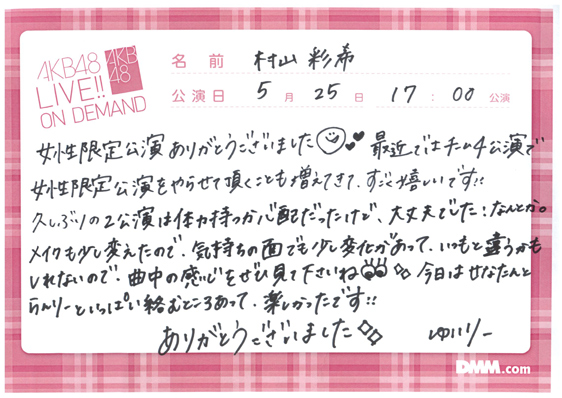 AKB48
LIVE!!
ON DEMAND
AKB
48
名前 村山 彩希
公演日 5月25日 17:00公演
女性限定公演ありがとうございました 最近ではチーム4公演で
女性限定公演をやらせて頂くことも増えてきて、すごく嬉しいです!!
久しぶりの2公演は体力持つか心配だったけど、大丈夫でした:なんとか。
メイクも少し変えたので、気持ちの面でも少し変化があって、いつもと違うかも
しれないので、曲中の感じをぜひ見て下さいね 今日はせなたんと
らんりーといっぱい絡むところあって、楽しかったです!!
ありがとうございました ゆいりー
DMM.com